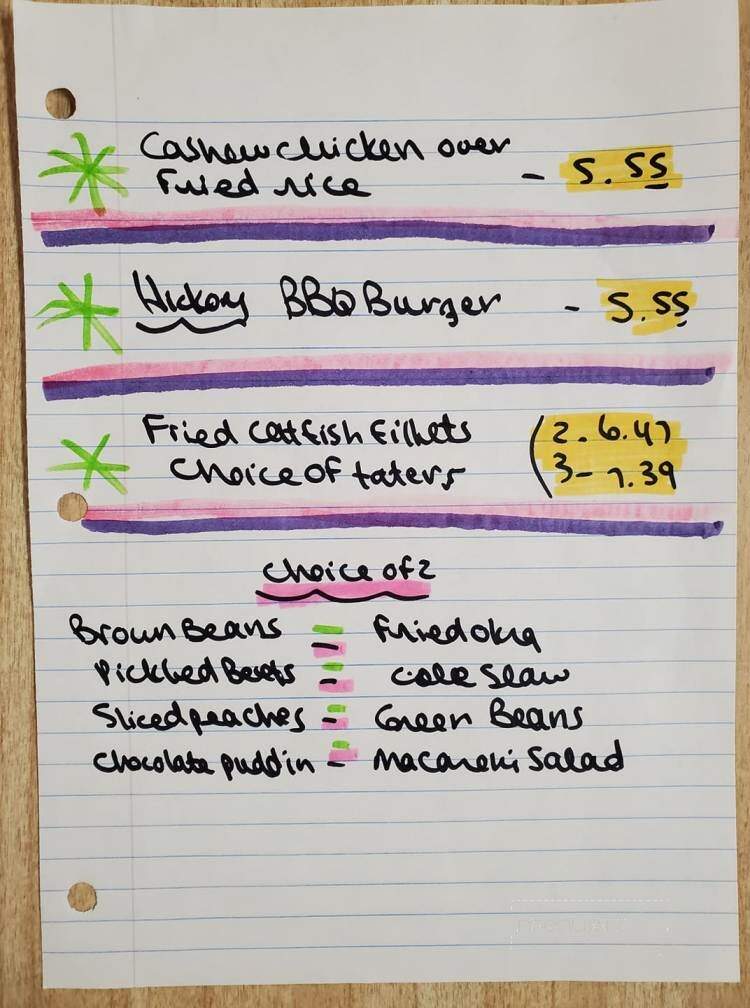 Cashew chicken over
Fried rice - 5.55
Hickory BBQ Burger - 5.55
Fried Catfish Fillets (2. 6.47
Choice of taters 3- 7.39
Choice of 2
Brown Beans - Fried okra
Pickled Beets - Cole Slaw
Sliced peaches - Green Beans
Chocolate puddin - Macaroni Salad